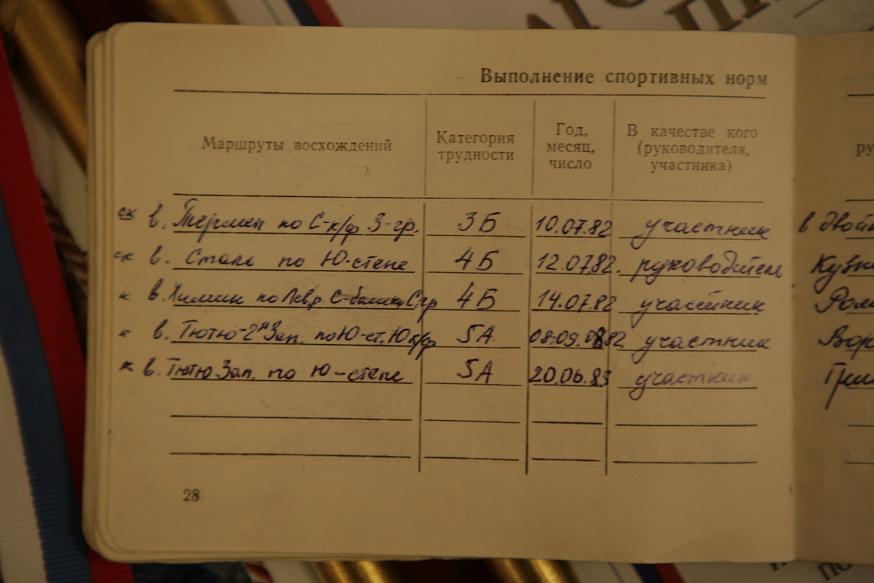 Выполнение спортивных норм
Маршруты восхождений
Категория трудности
Год, месяц, число
В качестве кого (руководителя, участника)
ру
ск в. по С-к/ф З-гр. 3Б 10.07.82 участник в двой
ск в. Сталь по Ю-стене 4Б 12.07.82. руководитель Кузн
к в. Химик по Лев. С-башни, С/гр 4Б 14.07.82 участник Ром
к в. Тютю-2ª Зап. по Ю-ст. Ю к/ф 5А 08.09.82 участник Вор
к в. Тютю Зап. по Ю-стене 5А 20.06.83 участник
28